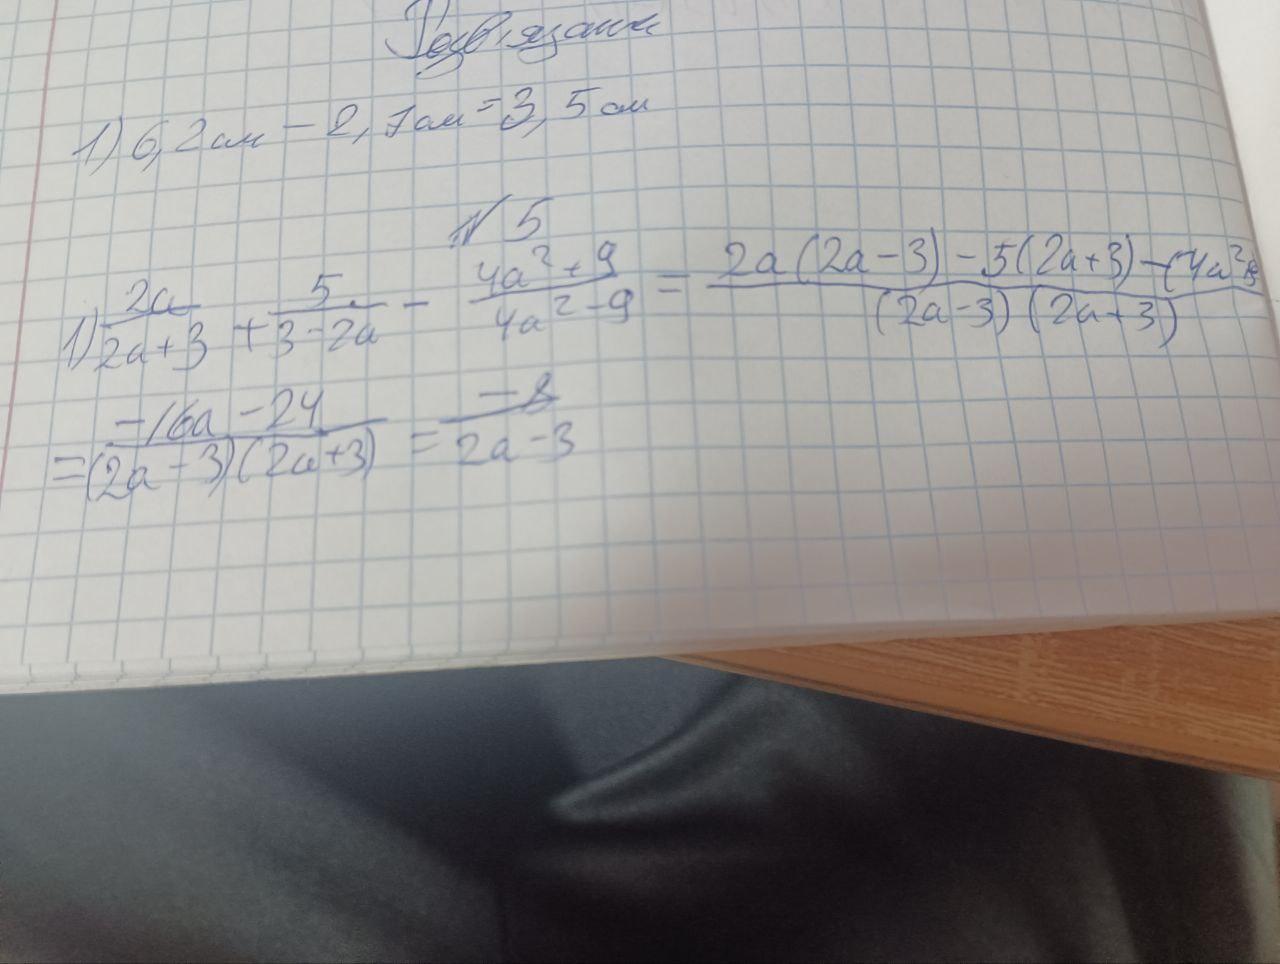 Розв'язання
1) 6,2см - 2,7см = 3,5см
№5
1) 2a/(2a+3) + 5/(3-2a) - (4a²+9)/(4a²-9) = (2a(2a-3)-5(2a+3)-(4a²+9)/((2a-3)(2a+3))
= (-16a-24)/((2a-3)(2a+3)) = -8/(2a-3)